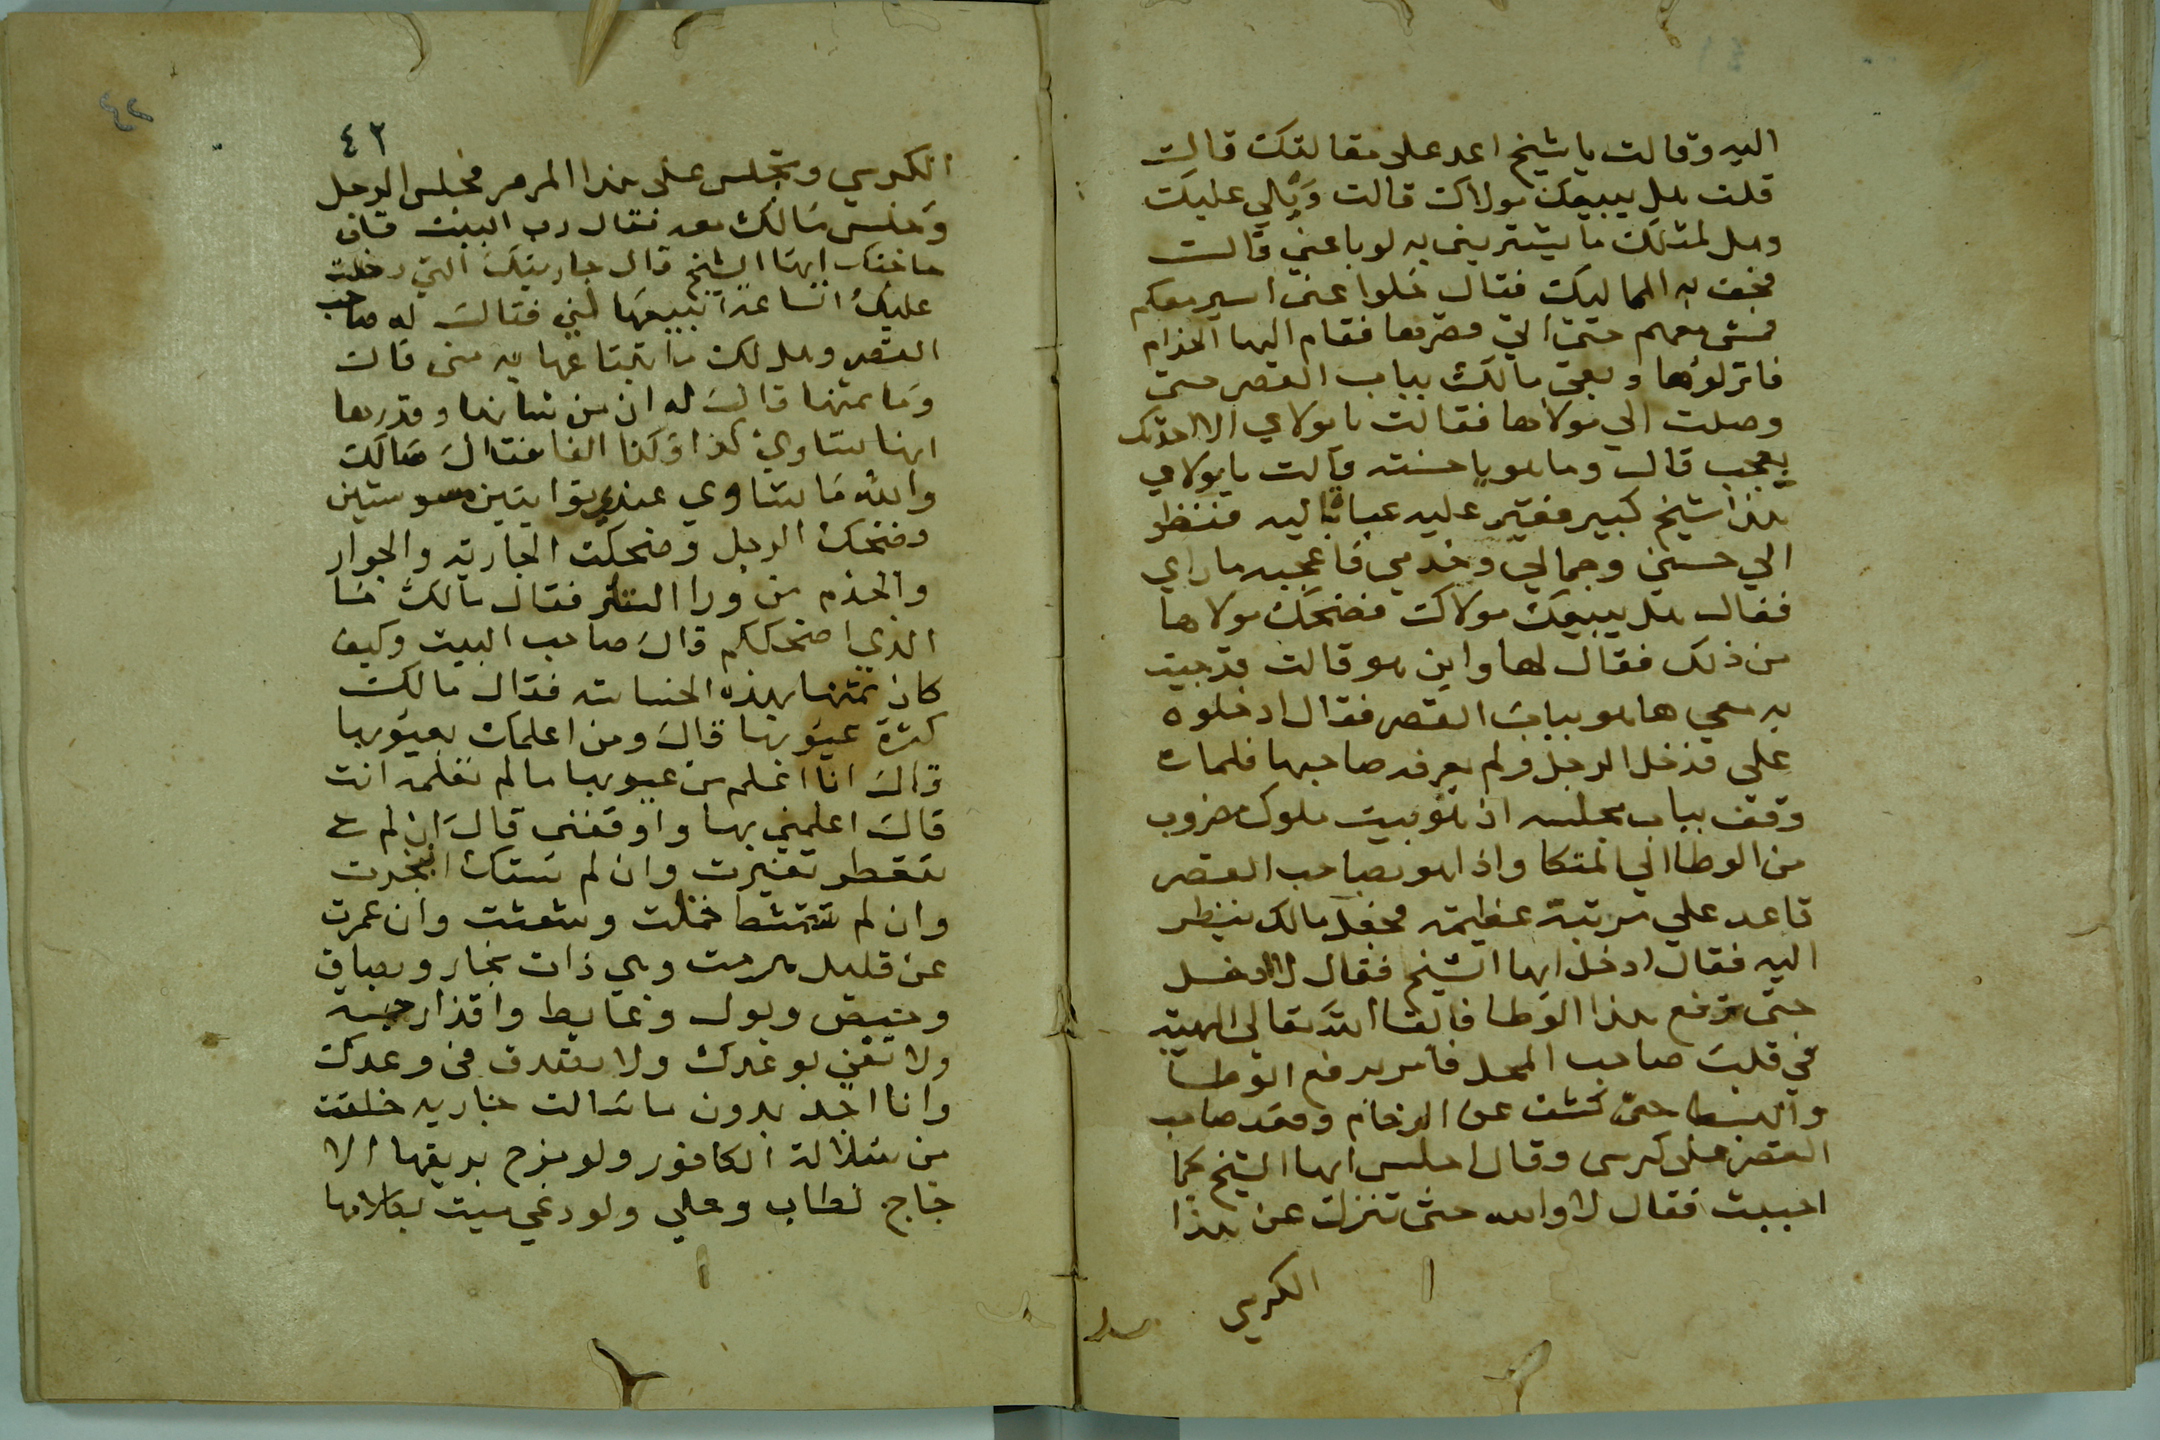 اليه وقالت يا شيخ اعد على مقالتك قالت
قلت هل يبيعك مولاك قالت ويلي عليك
وهل لمثلك ما يشتريني به لو باعني قالت
فحف به المماليك فقال خلوا عني اسير معكم
فمشى معهم حتى الى قصرها فقام اليها الخدام
فانزلوها وبقي مالك بباب القصر حتى
وصلت الي مولاها فقالت يا مولاي الا احدثك
بعجب قال وما هو يا حسنه قالت يا مولاي
هذا شيخ كبير فقير عليه عباة باليه فنظر
الي حسني وجمالي وخدمي فاعجبه ما راي
فقال هل يبيعك مولاك فضحك مولاها
من ذلك فقال لها واين هو قالت قد جيت
به معي ها هو بباب القصر فقال ادخلوه
علي فدخل الرجل ولم يعرفه صاحبها فلما
وقف بباب مجلسه اذ هو بيت ملوك مضروب
من الوطا الي المتكا واذا هو بصاحب القصر
قاعد علي مرتبة عظيمة فجعل مالك ينظر
اليه فقال ادخل ايها الشيخ فقال لا ادخل
حتى ترفع هذا الوطا فالقا الله تعالى الهيبة
في قلب صاحب المحل فامر برفع الوطا
والبسط حتى كشف عن الرخام وقعد صاحب
القصر على كرسي وقال اجلس ايها الشيخ كما
احببت فقال لا والله حتى تنزل عن هذا
الكرسي
٤٢
الكرسي وتجلس على هذا المرمر فجلس الرجل
وجلس مالك معه فقال رب البيت قال
حاجتك ايها الشيخ قال جاريتك التي دخلت
عليك الساعة اتبيعها لني فقال له صاحب
القصر وهل لك ما تبتاعها به مني قال
وما ثمنها قال له ان من شانها وقدرها
انها تساوي كذا وكذا الفا فقال مالك
والله ما تساوي عندي نوايتين مسوستين
وضحك الرجل وضحكت الجارية والجوار
والخدم من ورا الستر فقال مالك ما
الذي اضحككم قال صاحب البيت وكيف
كان ثمنها بهذه الخساسة فقال مالك
كثرة عيوبها قال ومن اعلمك بعيوبها
قال انا اعلم من عيوبها ما لم تعلمه انت
قال اعلمني بها واوقفني قال ان لم
تتعطر تغيرت وان لم تستاك ابخرت
وان لم تتمشط قملت وشعثت وان عمرت
عن قليل هرمت وهي ذات بخار وبصاق
وحيض وبول وغايط واقذار جمة
ولا تفي بوعدك ولا تصدق في وعدك
وانا اجد بدون ما سالت جاريه خلقت
من سلالة الكافور ولو مزج بريقها الا
جاج لطاب وحلي ولو دعي ميت بكلامها